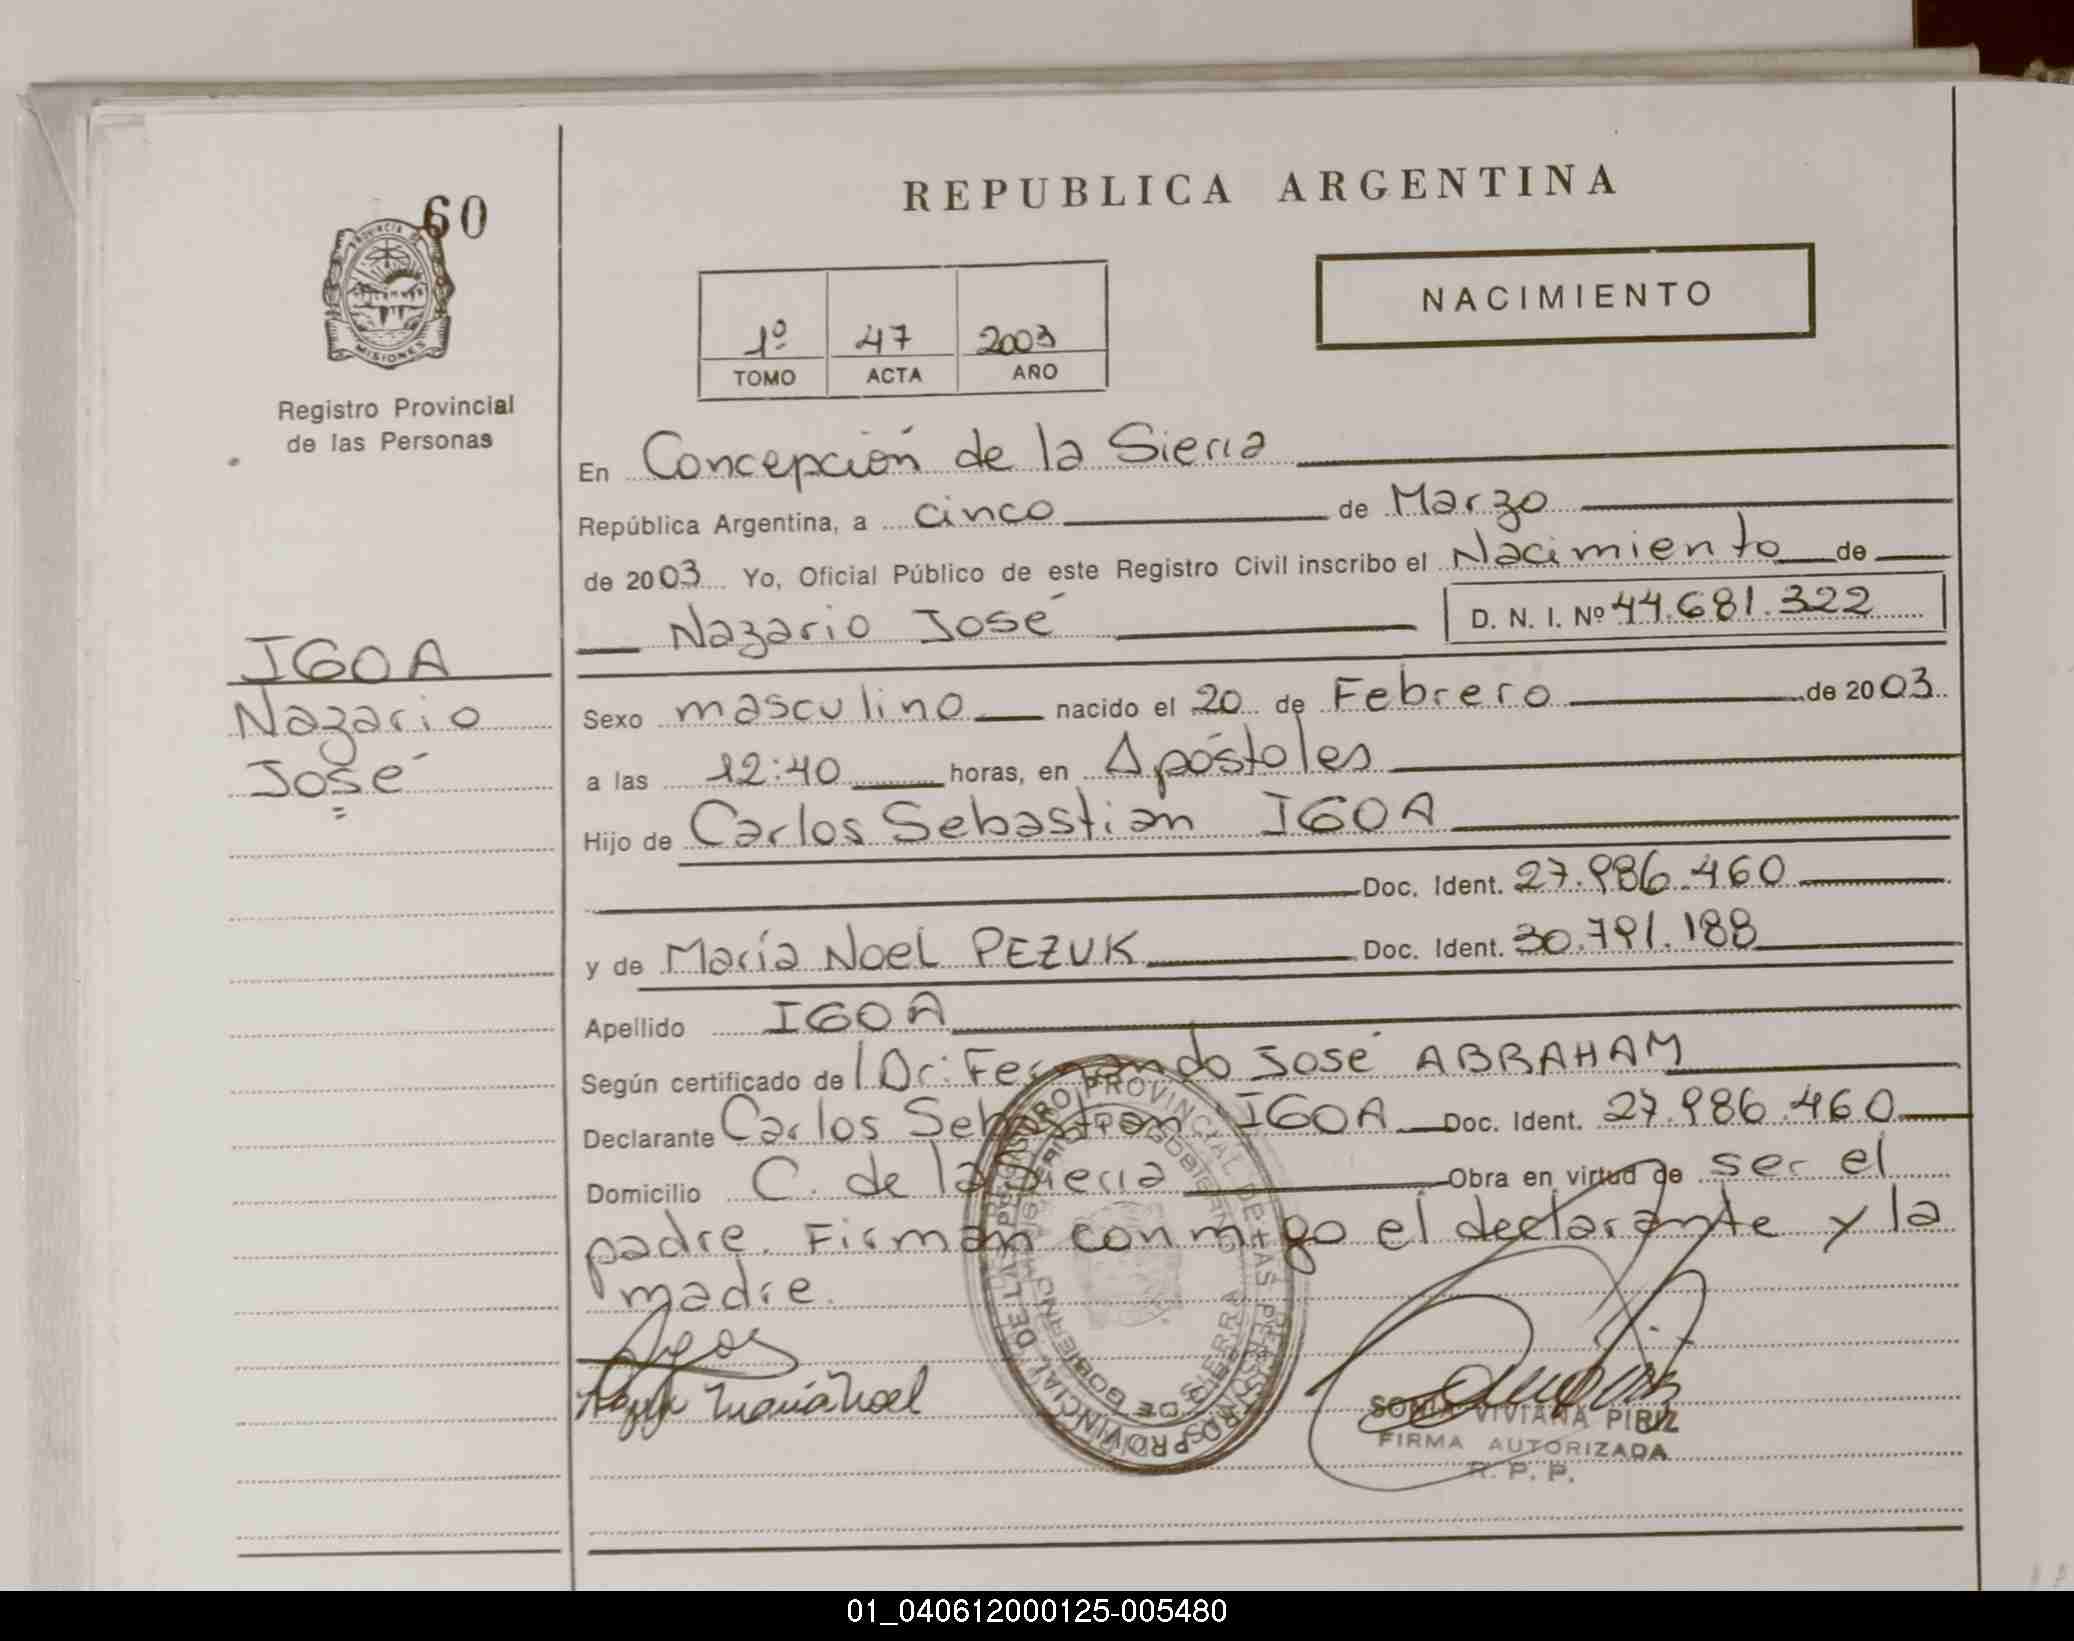 60
PROVINCIA DE
MISIONES
Registro Provincial
de las Personas
REPUBLICA ARGENTINA
NACIMIENTO
1º 47 2003
TOMO ACTA AÑO
En Concepción de la Sierra
República Argentina, a cinco de Marzo
de 2003 Yo, Oficial Público de este Registro Civil inscribo el Nacimiento de
Nazario José D. N. I. Nº 44.681.322
IGOA
Nazario
José
Sexo masculino nacido el 20 de Febrero de 2003
a las 12:40 horas, en Apóstoles
Hijo de Carlos Sebastian IGOA
Doc. Ident. 27.986.460
y de María Noel PEZUK Doc. Ident. 30.791.188
Apellido IGOA
Según certificado del Dr: Fernando José ABRAHAM
Declarante Carlos Sebastian IGOA Doc. Ident. 27.986.460
Domicilio C. de la Sierra Obra en virtud de ser el
padre. Firman conmigo el declarante y la
madre.
María Noel
SONIA VIVIANA PIRIZ
FIRMA AUTORIZADA
R. P. P.
01_040612000125-005480